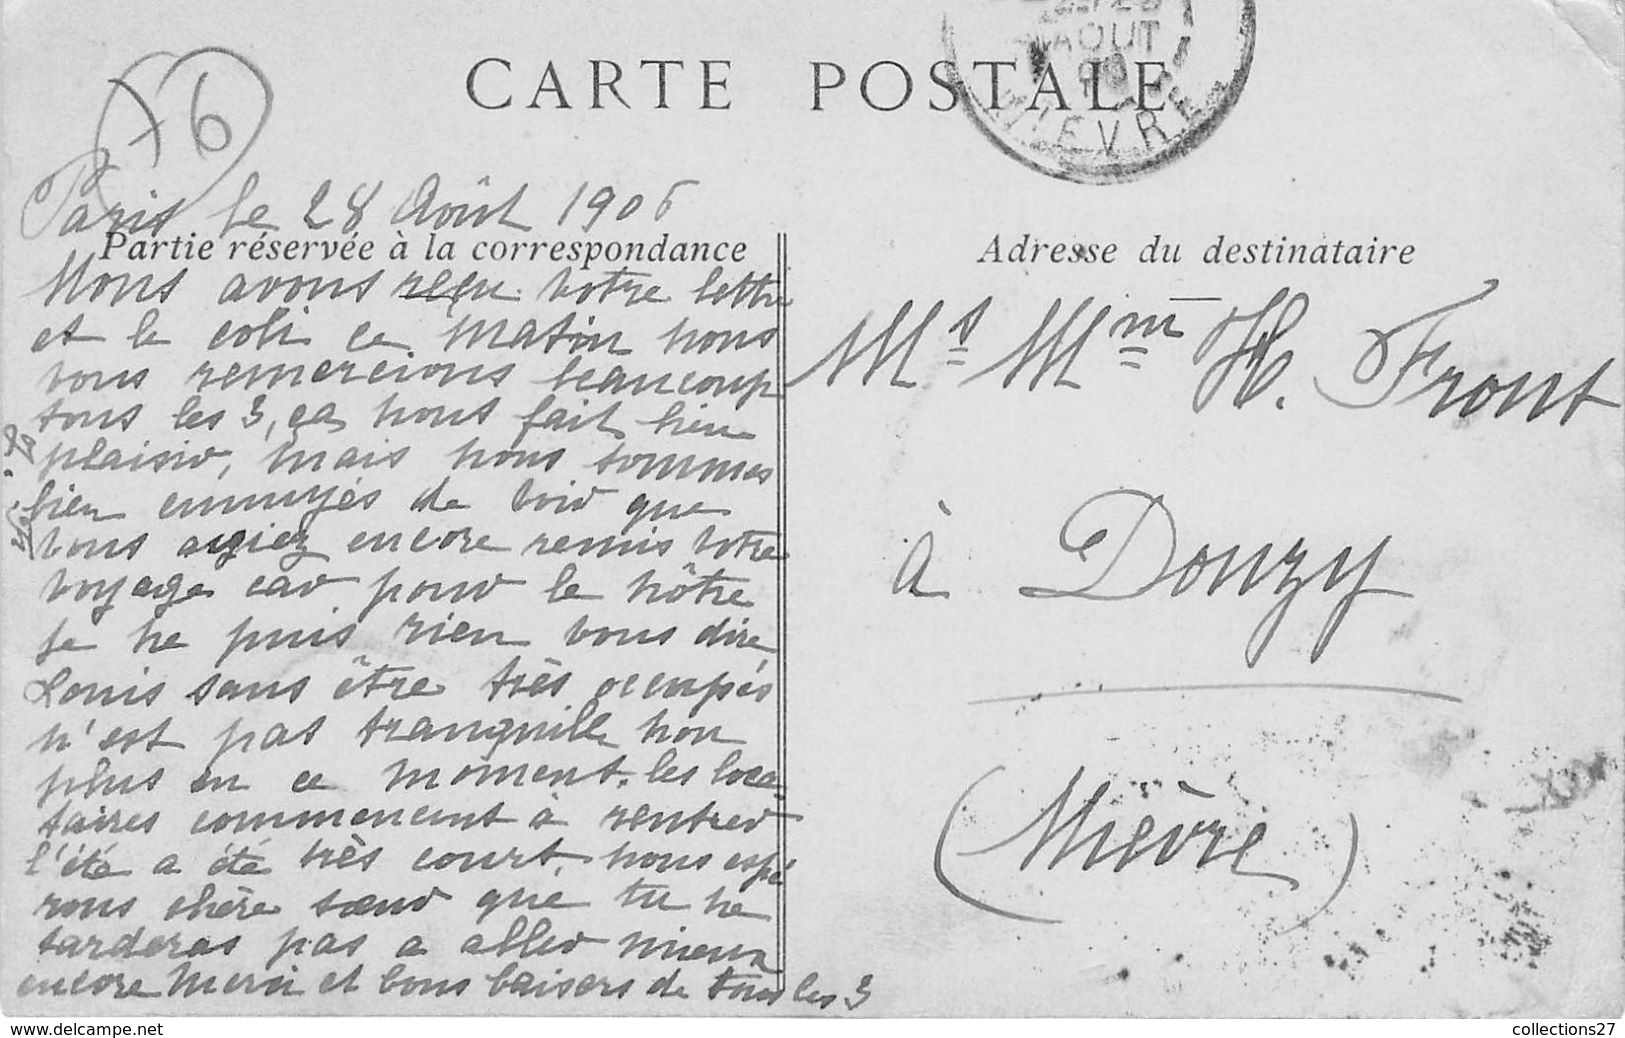 AOUT
CARTE POSTALE
NIEVRE
76
Paris le 28 Août 1906
Partie réservée à la correspondance
Nous avons reçu votre lettre
et le coli ce matin nous
vous remercions beaucoup
tous les 3, ça nous fait bien
plaisir, mais nous sommes
bien ennuyés de voir que
vous ayiez encore remis votre
voyage car pour le nôtre
je ne puis rien vous dire,
Louis sans être très occupés
n'est pas tranquille non
plus en ce moment. les loca
taires commencent à rentrer
l'été a été très court. nous espé
rons chère sœur que tu ne
tarderas pas a aller mieux
encore merci et bons baisers de tous les 3
Adresse du destinataire
Ms Mm H. Front
à Donzy
(Nièvre)
www.delcampe.net
collections27